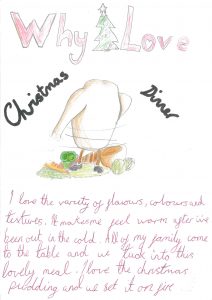 Why I Love
Christmas
Dinner
I love the variety of flavours, colours and
textures. It makes me feel warm after ive
been out in the cold. All of my family come
to the table and we tuck into this
lovely meal. I love the christmas
pudding and we set it on fire...